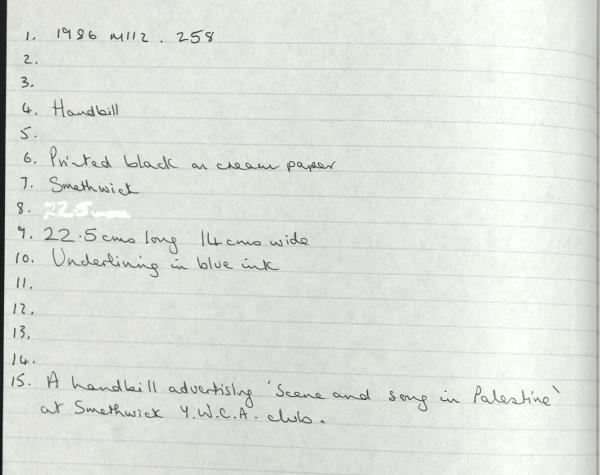 1. 1986 M112. 258
2.
3.
4. Handbill
5.
6. Printed black on cream paper
7. Smethwick
8. 22.5
9. 22.5 cms long 14 cms wide
10. Underlining in blue ink
11.
12.
13.
14.
15. A handbill advertising 'Scene and song in Palestine'
at Smethwick Y.W.C.A. club.